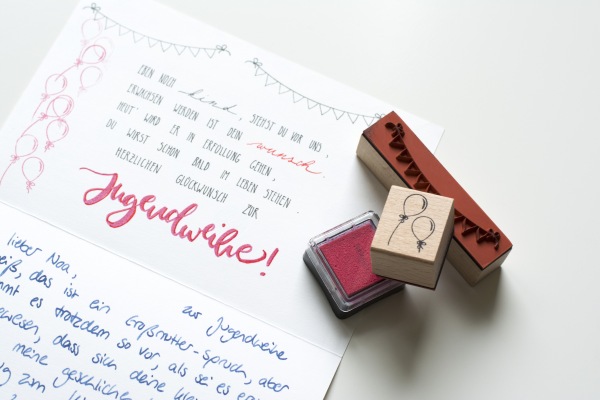 EBEN NOCH kind, STEHST DU VOR UNS,
ERWACHSEN WERDEN IST DEIN wunsch.
HEUT' WIRD ER IN ERFÜLLUNG GEHEN,
DU WIRST SCHON BALD IM LEBEN STEHEN.
HERZLICHEN GLÜCKWUNSCH ZUR
Jugendweihe!
lieber Noa,
das ist ein Großmutter-Spruch, aber zur Jugendweihe
es trotzdem so vor, als sei es
dass sich deine
meine geschlichen
zum